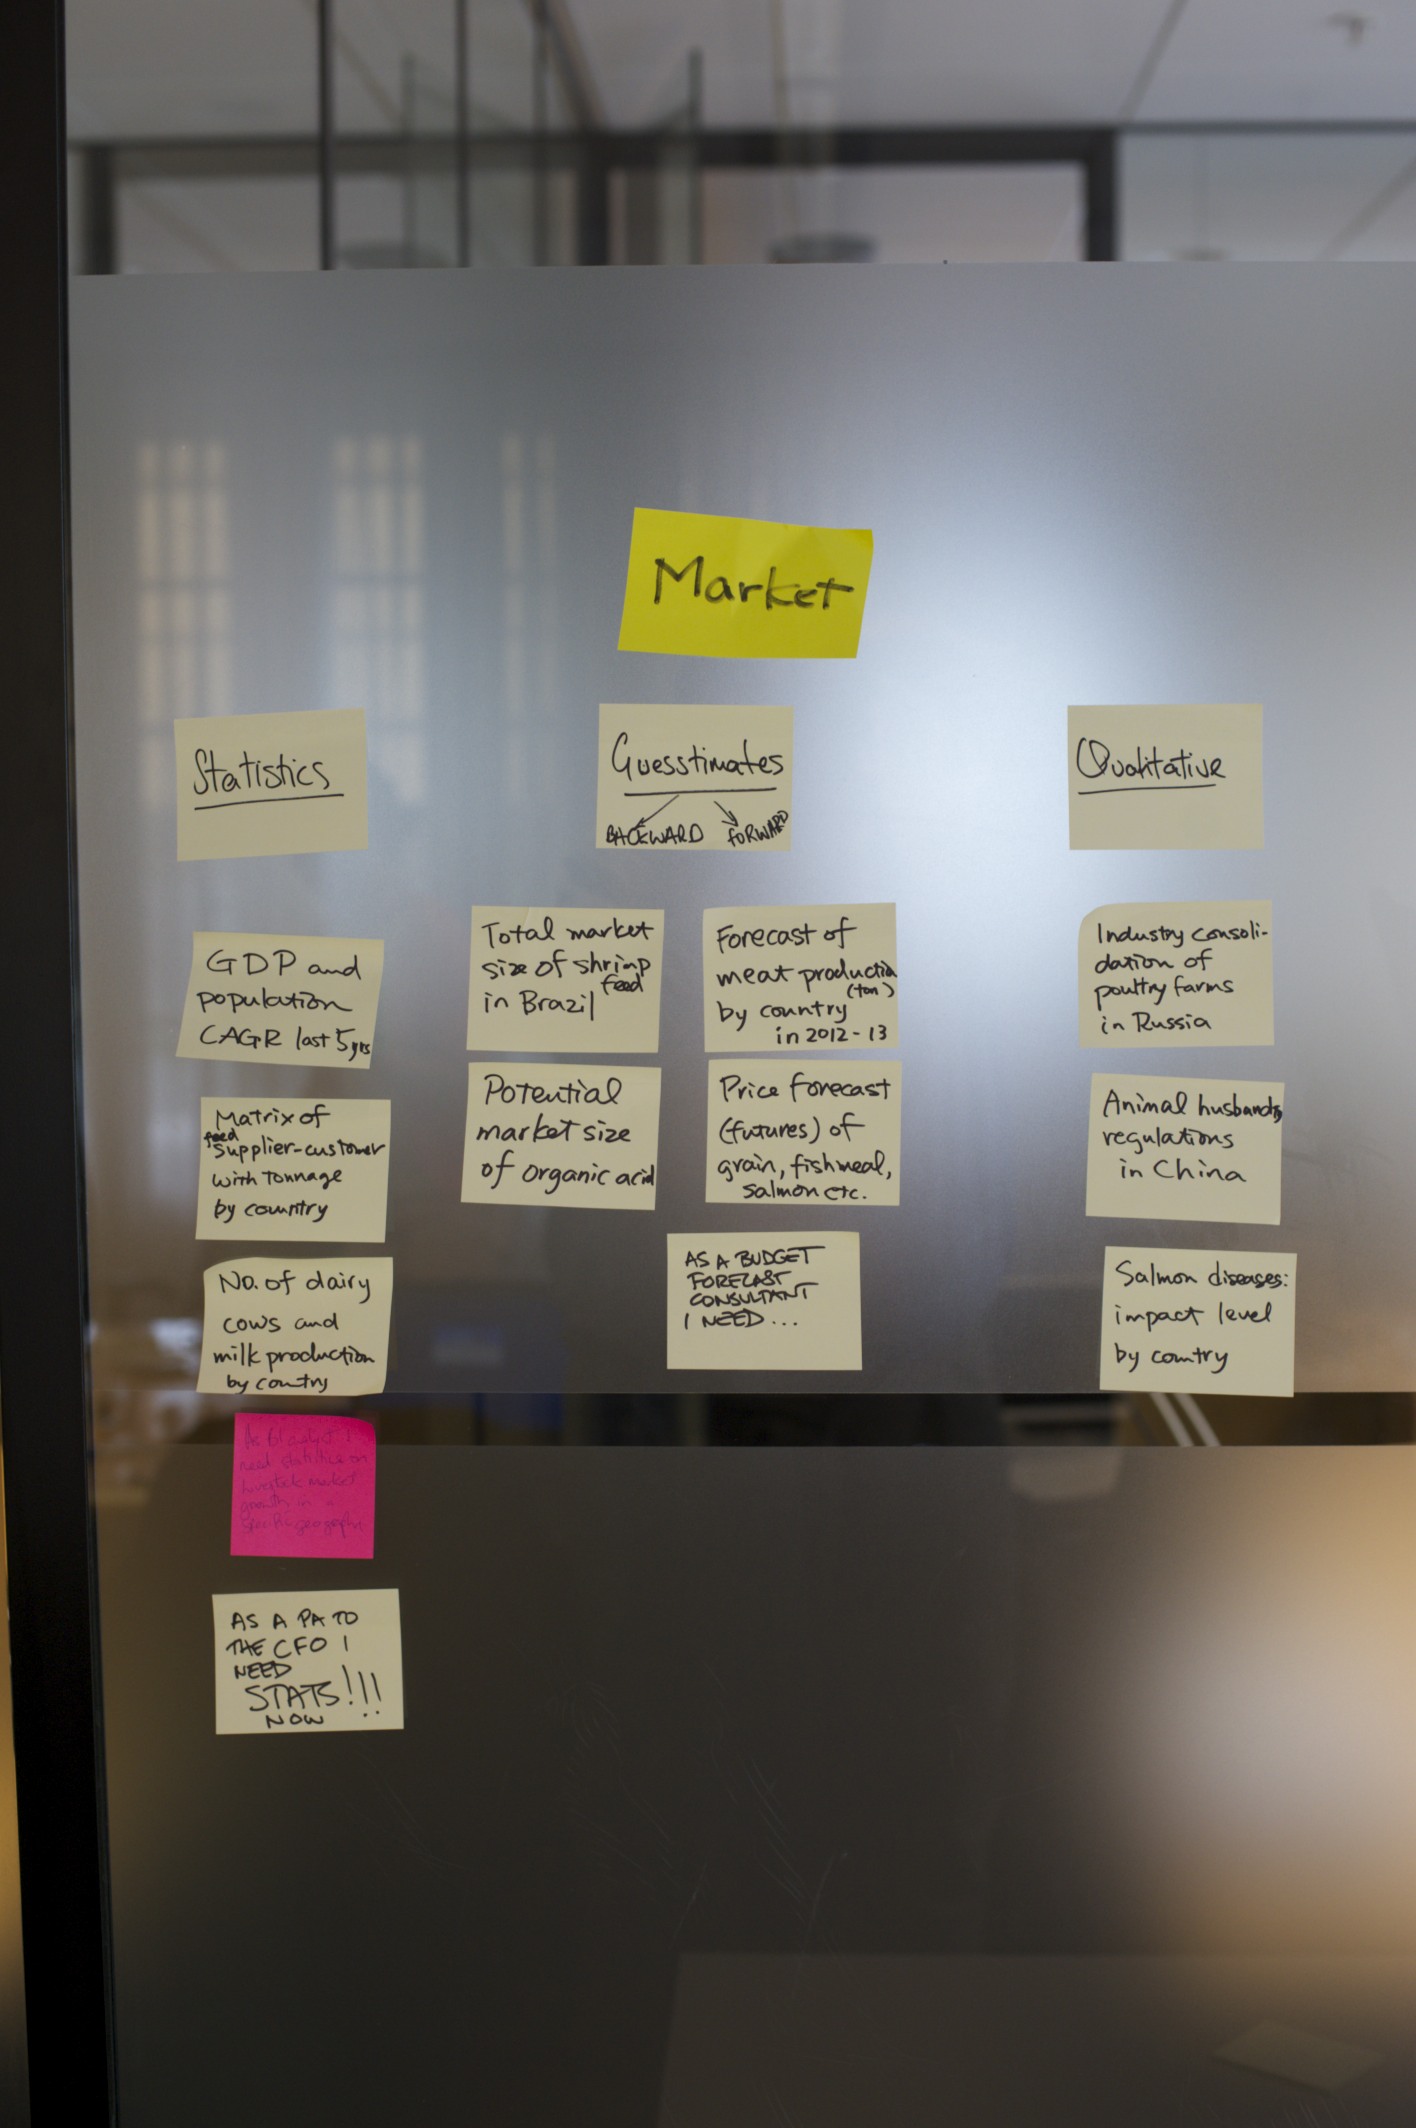 Market
Statistics
GDP and
population
CAGR last 5yrs
Matrix of
feed
supplier-customer
with tonnage
by country
No. of dairy
cows and
milk production
by country
As BI analyst I
need statistics on
livestock market
growth in a
specific geography
AS A PA TO
THE CFO I
NEED
STATS!!!
NOW
Guesstimates
BACKWARD FORWARD
Total market
size of shrimp
feed
in Brazil
Potential
market size
of organic acid
Forecast of
meat production
(ton)
by country
in 2012-13
Price forecast
(futures) of
grain, fishmeal,
salmon etc.
AS A BUDGET
FORECAST
CONSULTANT
I NEED...
Qualitative
Industry consoli-
dation of
poultry farms
in Russia
Animal husbandry
regulations
in China
Salmon diseases:
impact level
by country